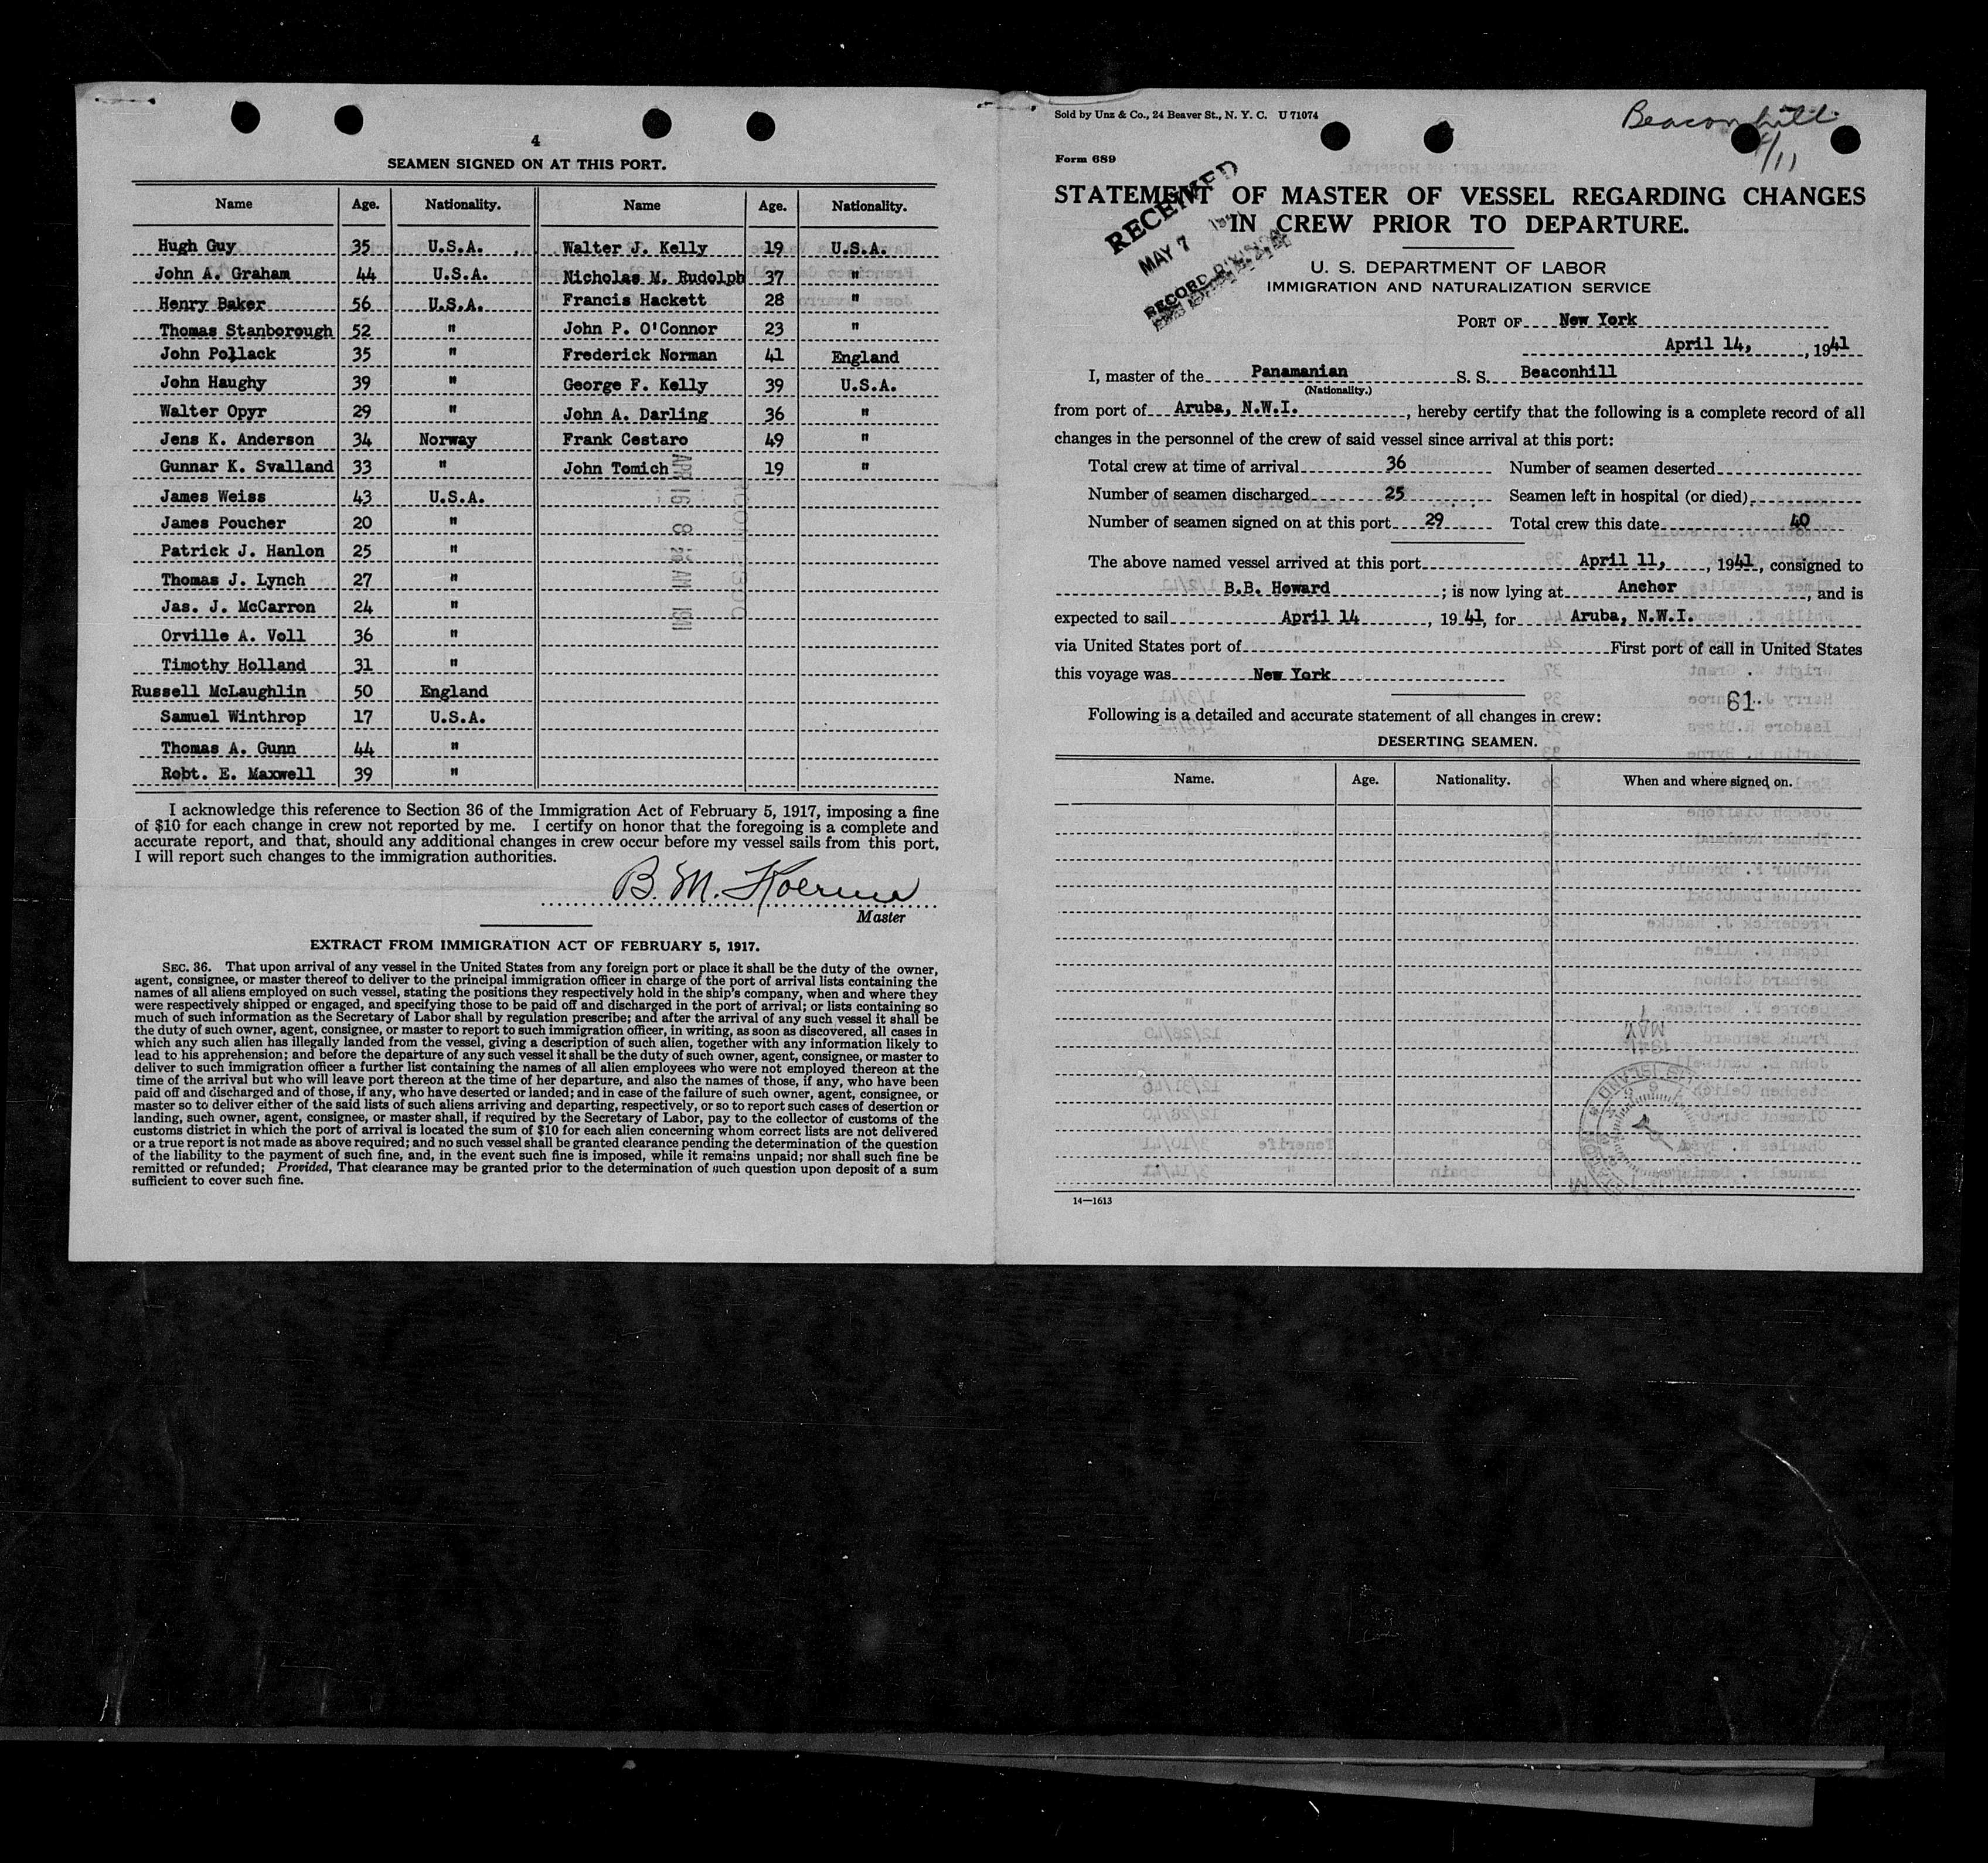 4
SEAMEN SIGNED ON AT THIS PORT.
Name Age. Nationality. Name Age. Nationality.
Hugh Guy 35 U.S.A. Walter J. Kelly 19 U.S.A.
John A. Graham 44 U.S.A. Nicholas M. Rudolph 37 "
Henry Baker 56 U.S.A. Francis Hackett 28 "
Thomas Stanborough 52 " John P. O'Connor 23 "
John Pollack 35 " Frederick Norman 41 England
John Haughy 39 " George F. Kelly 39 U.S.A.
Walter Opyr 29 " John A. Darling 36 "
Jens K. Anderson 34 Norway Frank Cestaro 49 "
Gunnar K. Svalland 33 " John Tomich 19 "
James Weiss 43 U.S.A.
James Poucher 20 "
Patrick J. Hanlon 25 "
Thomas J. Lynch 27 "
Jas. J. McCarron 24 "
Orville A. Voll 36 "
Timothy Holland 31 "
Russell McLaughlin 50 England
Samuel Winthrop 17 U.S.A.
Thomas A. Gunn 44 "
Robt. E. Maxwell 39 "
I acknowledge this reference to Section 36 of the Immigration Act of February 5, 1917, imposing a fine
of $10 for each change in crew not reported by me. I certify on honor that the foregoing is a complete and
accurate report, and that, should any additional changes in crew occur before my vessel sails from this port,
I will report such changes to the immigration authorities.
B. M. Koerner
Master
EXTRACT FROM IMMIGRATION ACT OF FEBRUARY 5, 1917.
SEC. 36. That upon arrival of any vessel in the United States from any foreign port or place it shall be the duty of the owner,
agent, consignee, or master thereof to deliver to the principal immigration officer in charge of the port of arrival lists containing the
names of all aliens employed on such vessel, stating the positions they respectively hold in the ship's company, when and where they
were respectively shipped or engaged, and specifying those to be paid off and discharged in the port of arrival; or lists containing so
much of such information as the Secretary of Labor shall by regulation prescribe; and after the arrival of any such vessel it shall be
the duty of such owner, agent, consignee, or master to report to such immigration officer, in writing, as soon as discovered, all cases in
which any such alien has illegally landed from the vessel, giving a description of such alien, together with any information likely to
lead to his apprehension; and before the departure of any such vessel it shall be the duty of such owner, agent, consignee, or master to
deliver to such immigration officer a further list containing the names of all alien employees who were not employed thereon at the
time of the arrival but who will leave port thereon at the time of her departure, and also the names of those, if any, who have been
paid off and discharged and of those, if any, who have deserted or landed; and in case of the failure of such owner, agent, consignee, or
master so to deliver either of the said lists of such aliens arriving and departing, respectively, or so to report such cases of desertion or
landing, such owner, agent, consignee, or master shall, if required by the Secretary of Labor, pay to the collector of customs of the
customs district in which the port of arrival is located the sum of $10 for each alien concerning whom correct lists are not delivered
or a true report is not made as above required; and no such vessel shall be granted clearance pending the determination of the question
of the liability to the payment of such fine, and, in the event such fine is imposed, while it remains unpaid; nor shall such fine be
remitted or refunded; Provided, That clearance may be granted prior to the determination of such question upon deposit of a sum
sufficient to cover such fine.
Sold by Unz & Co., 24 Beaver St., N. Y. C. U 71074
Beaconhill
4/11
Form 689
RECEIVED
MAY 7 1941
RECORD DIVISION
STATEMENT OF MASTER OF VESSEL REGARDING CHANGES
IN CREW PRIOR TO DEPARTURE.
U. S. DEPARTMENT OF LABOR
IMMIGRATION AND NATURALIZATION SERVICE
PORT OF New York
April 14, , 1941
I, master of the Panamanian S. S. Beaconhill
(Nationality.)
from port of Aruba, N.W.I. , hereby certify that the following is a complete record of all
changes in the personnel of the crew of said vessel since arrival at this port:
Total crew at time of arrival 36 Number of seamen deserted
Number of seamen discharged 25 Seamen left in hospital (or died)
Number of seamen signed on at this port 29 Total crew this date 40
The above named vessel arrived at this port April 11, , 1941, consigned to
B.B. Howard ; is now lying at Anchor , and is
expected to sail April 14 , 19 41, for Aruba, N.W.I.
via United States port of First port of call in United States
this voyage was New York
61
Following is a detailed and accurate statement of all changes in crew:
DESERTING SEAMEN.
Name. Age. Nationality. When and where signed on.
14—1613